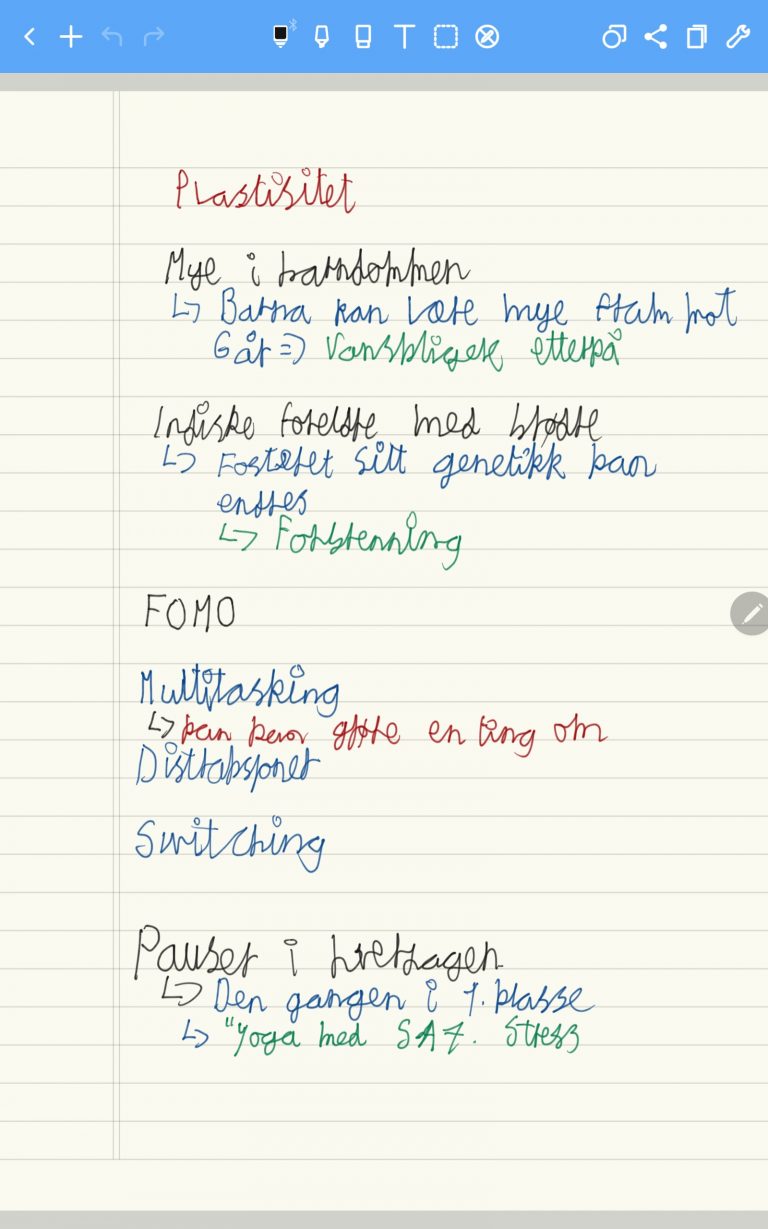 Plastisitet
Mye i barndommen
↳ Barna kan være mye fram mot
6 år => Vanskeligere etterpå
Indiske foreldre med brødre
↳ Fosteret sitt genetikk kan
endres
↳ Forskrenning
FOMO
Multitasking
↳ kan bare gjøre en ting om
Distraksjoner
Switching
Pauser i hverdagen
↳ Den gangen i 7. klasse
↳ "Yoga med SA7. Stress